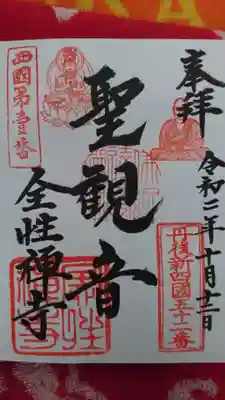 奉拝
令和二年十月十二日
丹後新西國五十二番
聖観音
西國第壹番
全性禅寺